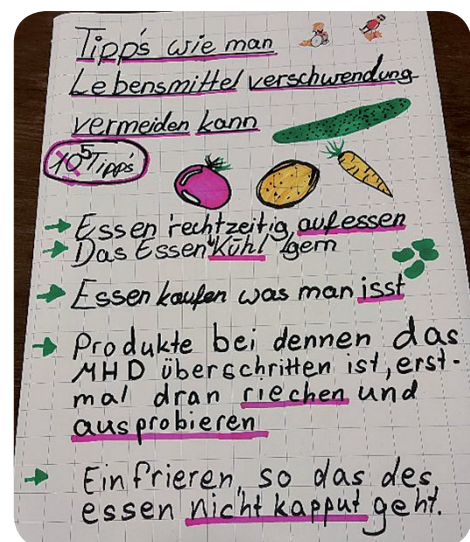 Tipp's wie man
Lebensmittel verschwendung
vermeiden kann
5 Tipp's
Essen rechtzeitig aufessen
Das Essen Kühl lgern
Essen kaufen was man isst
Produkte bei dennen das
MHD überschritten ist, erst-
mal dran riechen und
ausprobieren
Einfrieren, so das des
essen nicht kapput geht.